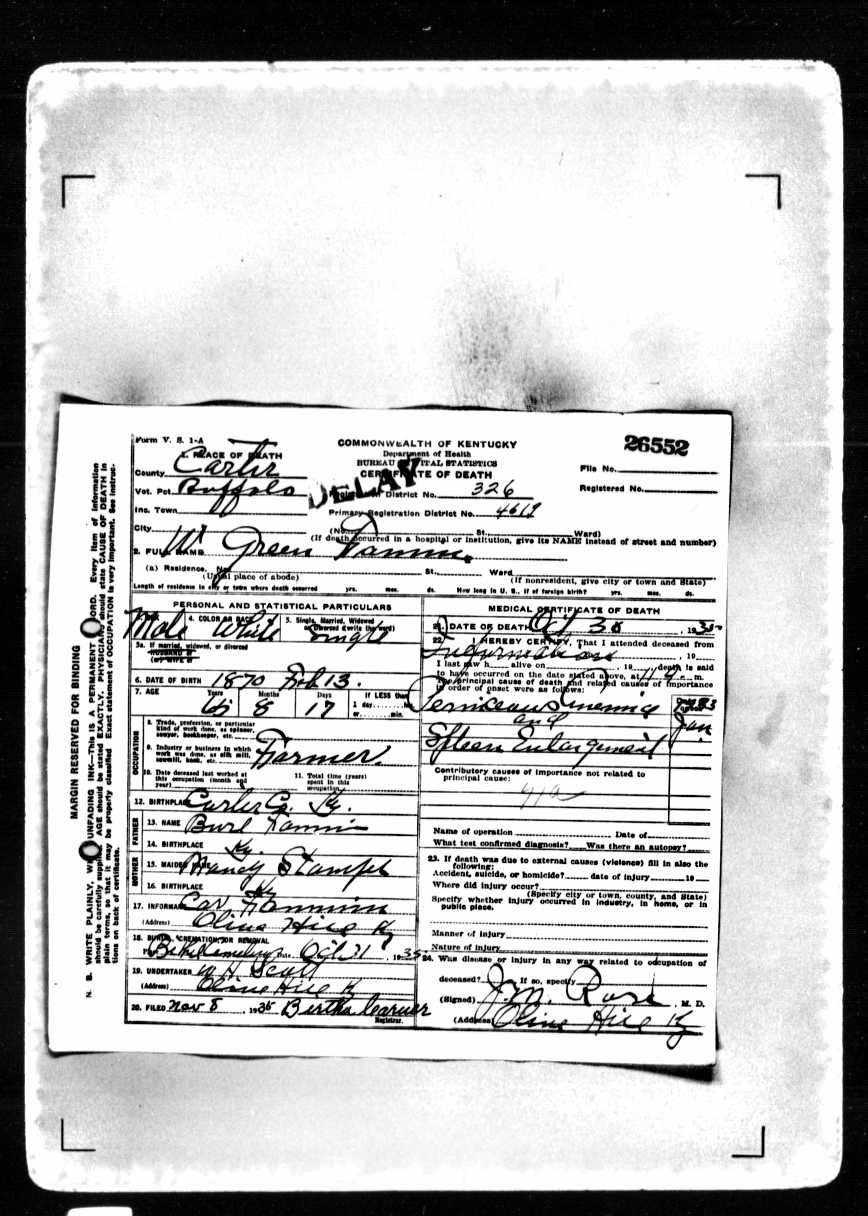 Form V. S. 1-A
COMMONWEALTH OF KENTUCKY
Department of Health
BUREAU VITAL STATISTICS
CERTIFICATE OF DEATH
26552
DELAY
File No.
Registered No.
1. PLACE OF DEATH
County Carter
Vot. Pct Buffalo
Registration District No. 326
Inc. Town
Primary Registration District No. 4619
City (No. St. Ward)
(If death occurred in a hospital or institution, give its NAME instead of street and number)
2. FULL NAME Wm Green
(a) Residence. No. St. Ward
(Usual place of abode) (If nonresident, give city or town and State)
Length of residence in city or town where death occurred yrs. mos. ds. How long in U. S., if of foreign birth? yrs. mos. ds.
PERSONAL AND STATISTICAL PARTICULARS
Male 4. COLOR OR RACE White 5. Single, Married, Widowed or Divorced (write the word) Single
5a. If married, widowed, or divorced
HUSBAND of
(or) WIFE of
6. DATE OF BIRTH 1870 Feb 13.
7. AGE Years 65 Months 8 Days 17 If LESS than
1 day hrs.
or min.
OCCUPATION
8. Trade, profession, or particular kind of work done, as spinner, sawyer, bookkeeper, etc.
Farmer
9. Industry or business in which work was done, as silk mill, sawmill, bank, etc.
10. Date deceased last worked at this occupation (month and year)
11. Total time (years) spent in this occupation
12. BIRTHPLACE Carter Co. Ky.
FATHER
13. NAME Burl
14. BIRTHPLACE Ky.
MOTHER
15. MAIDEN NAME Mandy
16. BIRTHPLACE Ky
17. INFORMANT
(Address) Olive Hill Ky
18. BURIAL, CREMATION, OR REMOVAL
Date Oct 31, 1935
19. UNDERTAKER W. H. Scott
(Address) Olive Hill Ky
20. FILED Nov 8 1935 Bertha
Registrar.
MEDICAL CERTIFICATE OF DEATH
21. DATE OF DEATH Oct 30, 1935
22. I HEREBY CERTIFY, That I attended deceased from
, 19
I last saw h alive on , 19 death is said
to have occurred on the date stated above, at 11 m.
The principal cause of death and related causes of importance
in order of onset were as follows:
and
Jan
Spleen Enlargement
Contributory causes of importance not related to
principal cause:
Name of operation Date of
What test confirmed diagnosis? Was there an autopsy?
23. If death was due to external causes (violence) fill in also the
following:
Accident, suicide, or homicide? date of injury 19
Where did injury occur?
(Specify city or town, county, and State)
Specify whether injury occurred in industry, in home, or in
public place.
Manner of injury
Nature of injury
24. Was disease or injury in any way related to occupation of
deceased? If so, specify
(Signed) J. M. Rose, M. D.
(Address) Olive Hill Ky
MARGIN RESERVED FOR BINDING
N. B. WRITE PLAINLY, WITH UNFADING INK—This is a PERMANENT RECORD. Every item of information
should be carefully supplied. AGE should be stated EXACTLY. PHYSICIANS should state CAUSE OF DEATH in
plain terms, so that it may be properly classified. Exact statement of OCCUPATION is very important. See instruc-
tions on back of certificate.